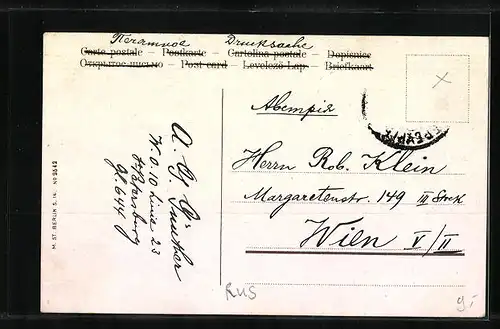 Печатное Drucksache
Carte postale – Postkarte – Cartolina postale – Dopisnice
Открытое письмо – Post card – Levelező-Lap – Briefkaart
Австрія
Herrn Rob. Klein
Margaretenstr. 149 III Stock
Wien V/II
W. O. 10 Linie 23
St. Petersburg
M. ST. BERLIN S. 14. No 9542
RUS